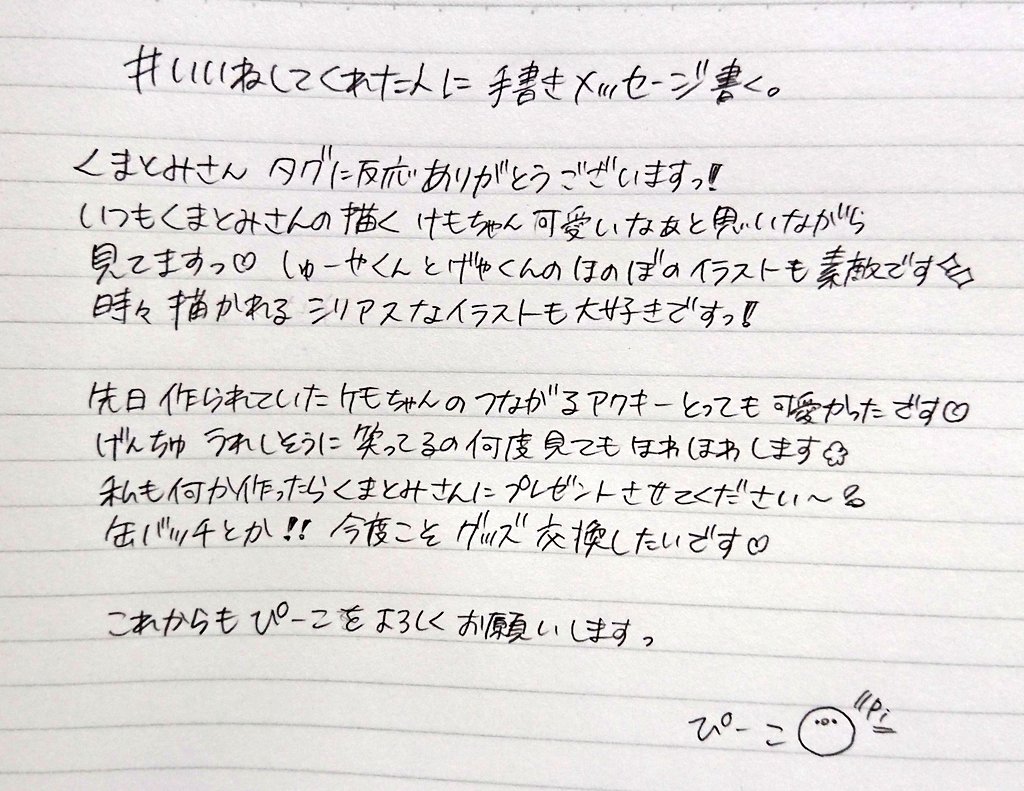 #いいねしてくれた人に手書きメッセージ書く。
くまとみさん タグに反応ありがとうございますっ!
いつもくまとみさんの描く けもちゃん可愛いなぁと思いながら
見てますっ♡ しゅーやくんとげやくんのほのぼのイラストも素敵です✧
時々描かれるシリアスなイラストも大好きですっ!
先日作られていたケモちゃんのつながるアクキーとっても可愛かったです♡
げんちゅ うれしそうに笑ってるの何度見てもほわほわします
私も何か作ったらくまとみさんにプレゼントさせてください〜
缶バッチとか!! 今度こそグッズ交換したいです♡
これからもぴーこをよろしくお願いしますっ
ぴーこ Pi